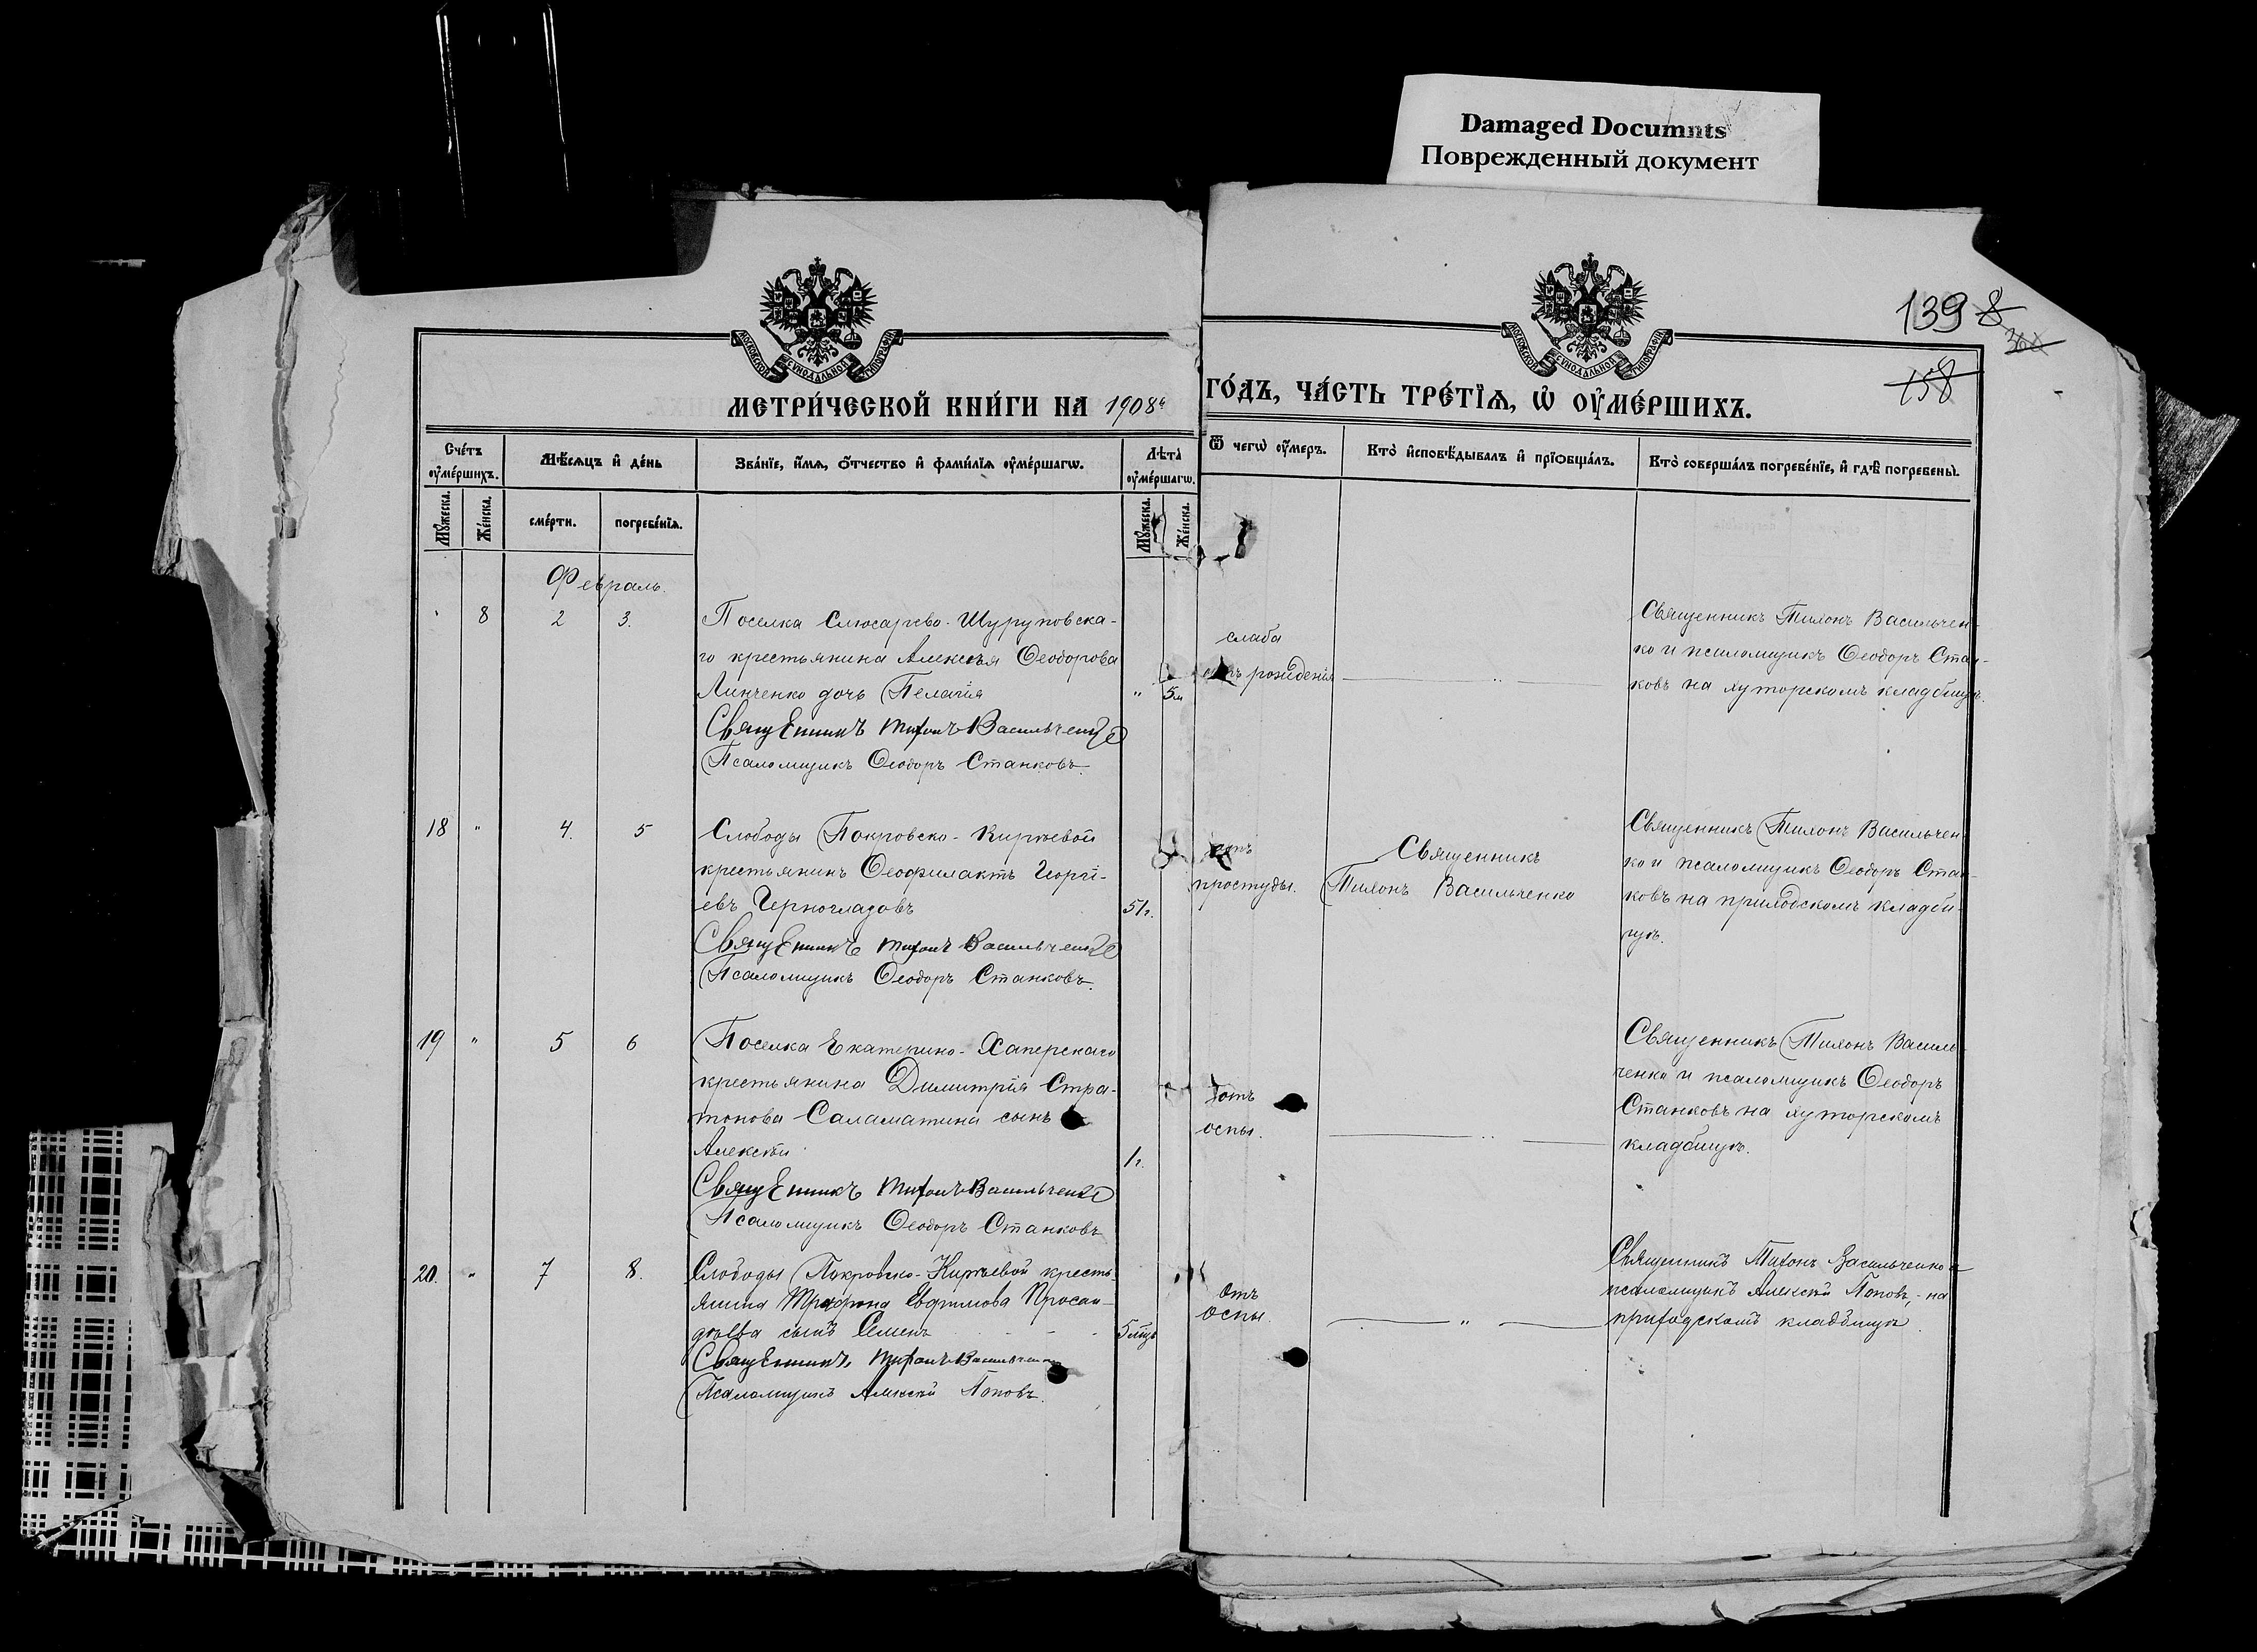 Damaged Documnts
Поврежденный документ
139 8
158
МОСКОВСКОЙ СѴНОДАЛЬНОЙ ТИПОГРАФІИ
МОСКОВСКОЙ СѴНОДАЛЬНОЙ ТИПОГРАФІИ
МЕТРИ́ЧЕСКОЙ КНИ́ГИ НА 1908 ГО́ДЪ, ЧА́СТЬ ТРЕ́ТІѦ, Ѡ҆ ОУ҆МЕ́РШИХЪ.
Сче́тъ оу҆ме́ршихъ.
Мѣ́сѧцъ и҆ де́нь
Зва́нїе, и҆́мѧ, ѻ҆́тчество и҆ фами́лїѧ оу҆ме́ршагѡ.
Лѣта̀ оу҆ме́ршагѡ.
Ѿ чегѡ̀ оу҆́меръ.
Кто̀ и҆сповѣ́дывалъ и҆ прїѡбща́лъ.
Кто̀ соверша́лъ погребе́нїе, и҆ гдѣ̀ погребены̀.
Мꙋ́жеска.
Же́нска.
сме́рти.
погребе́нїѧ.
Мꙋ́жеска.
Же́нска.
Февраль.
" 8 2 3.
Поселка Слюсарево-Шуруповска-
го крестьянина Алексѣя Ѳеодорова
Линченко дочь Пелагія
" 5м
Священникъ Тихонъ Васильченко
Псаломщикъ Ѳеодоръ Станковъ.
слаба
отъ рожденія
Священникъ Тихонъ Васильчен-
ко и псаломщикъ Ѳеодоръ Стан-
ковъ на хуторскомъ кладбищѣ.
18 " 4. 5
Слободы Покровско-Киртевой
крестьянинъ Ѳеофилактъ Георгі-
евъ Черногладовъ
51г.
Священникъ Тихонъ Васильченко
Псаломщикъ Ѳеодоръ Станковъ.
отъ
простуды.
Священникъ
Тихонъ Васильченко
Священникъ Тихонъ Васильчен-
ко и псаломщикъ Ѳеодоръ Стан-
ковъ на приходскомъ кладби-
щѣ.
19 " 5 6
Поселка Екатерино-Хаперскаго
крестьянина Димитрія Стра-
тонова Саламатина сынъ
Алексѣй
1г.
Священникъ Тихонъ Васильченко
Псаломщикъ Ѳеодоръ Станковъ
отъ
оспы.
Священникъ Тихонъ Василь-
ченко и псаломщикъ Ѳеодоръ
Станковъ на хуторскомъ
кладбищѣ.
20. " 7 8.
Слободы Покровско-Киртевой кресть-
янина Трофима Евфимова
сынъ Семенъ
5 мцъ
Священникъ Тихонъ Васильченко
Псаломщикъ Алексѣй Поповъ.
Отъ
оспы.
Священникъ Тихонъ Васильченко и
псаломщикъ Алексѣй Поповъ, - на
приходскомъ кладбищѣ.